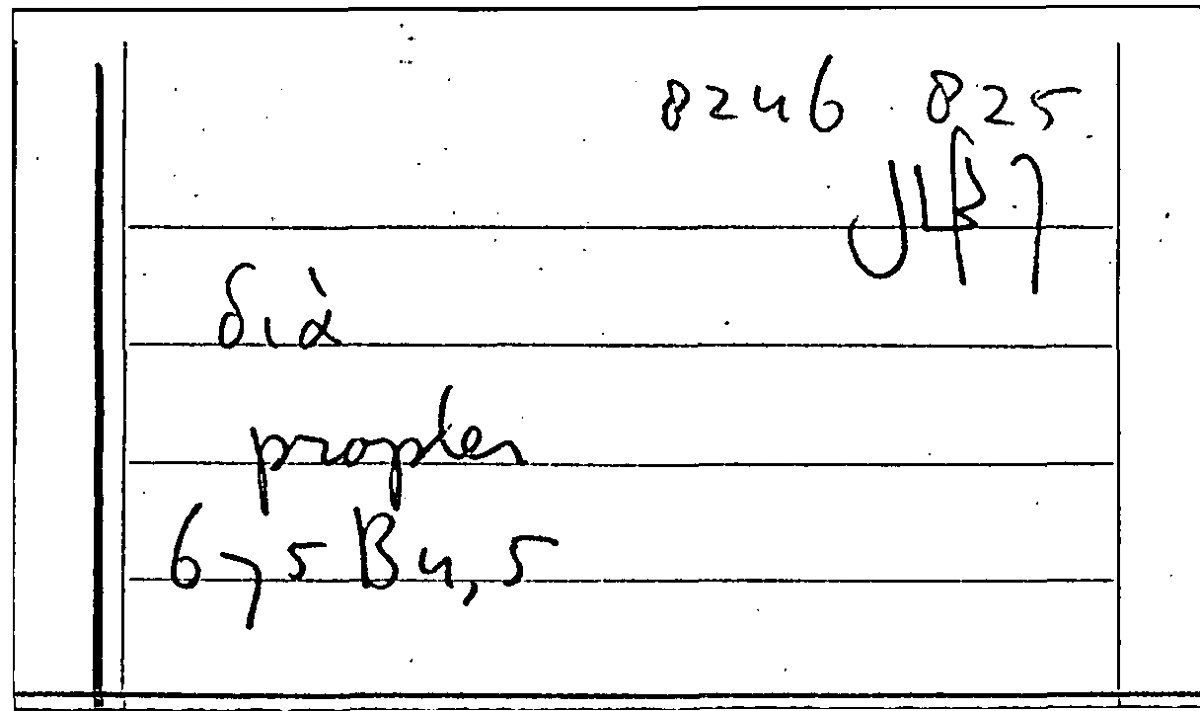 8246 825
διὰ
propter
675 B 4, 5